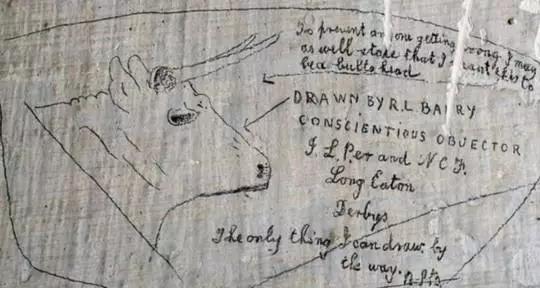 To prevent anyone getting wrong, I may
as well state that I meant this to
be a bull's head
DRAWN BY R.L BARRY
CONSCIENTIOUS OBJECTOR
I.L.Per and N C F.
Long Eaton
Derbys
The only thing I can draw by
the way.